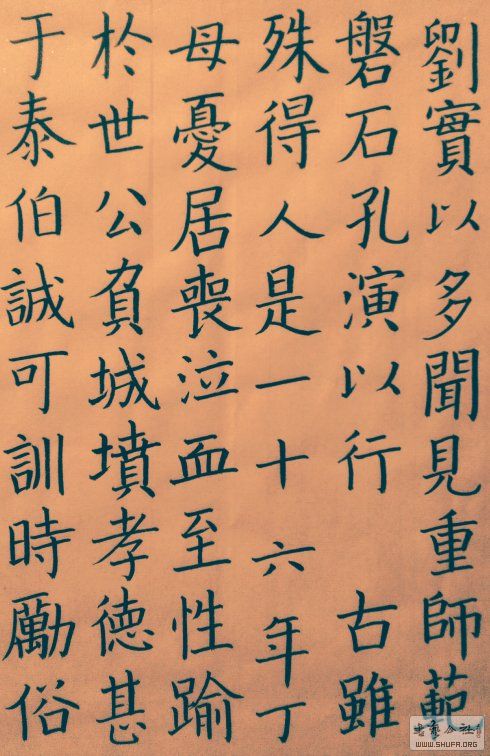 劉實以多聞見重師範
磐石孔演以行 古雖
殊得人是一十六年丁
母憂居喪泣血至性踰
於世公負城墳孝德甚
于泰伯誠可訓時勵俗
WWW.SHUFA.ORG